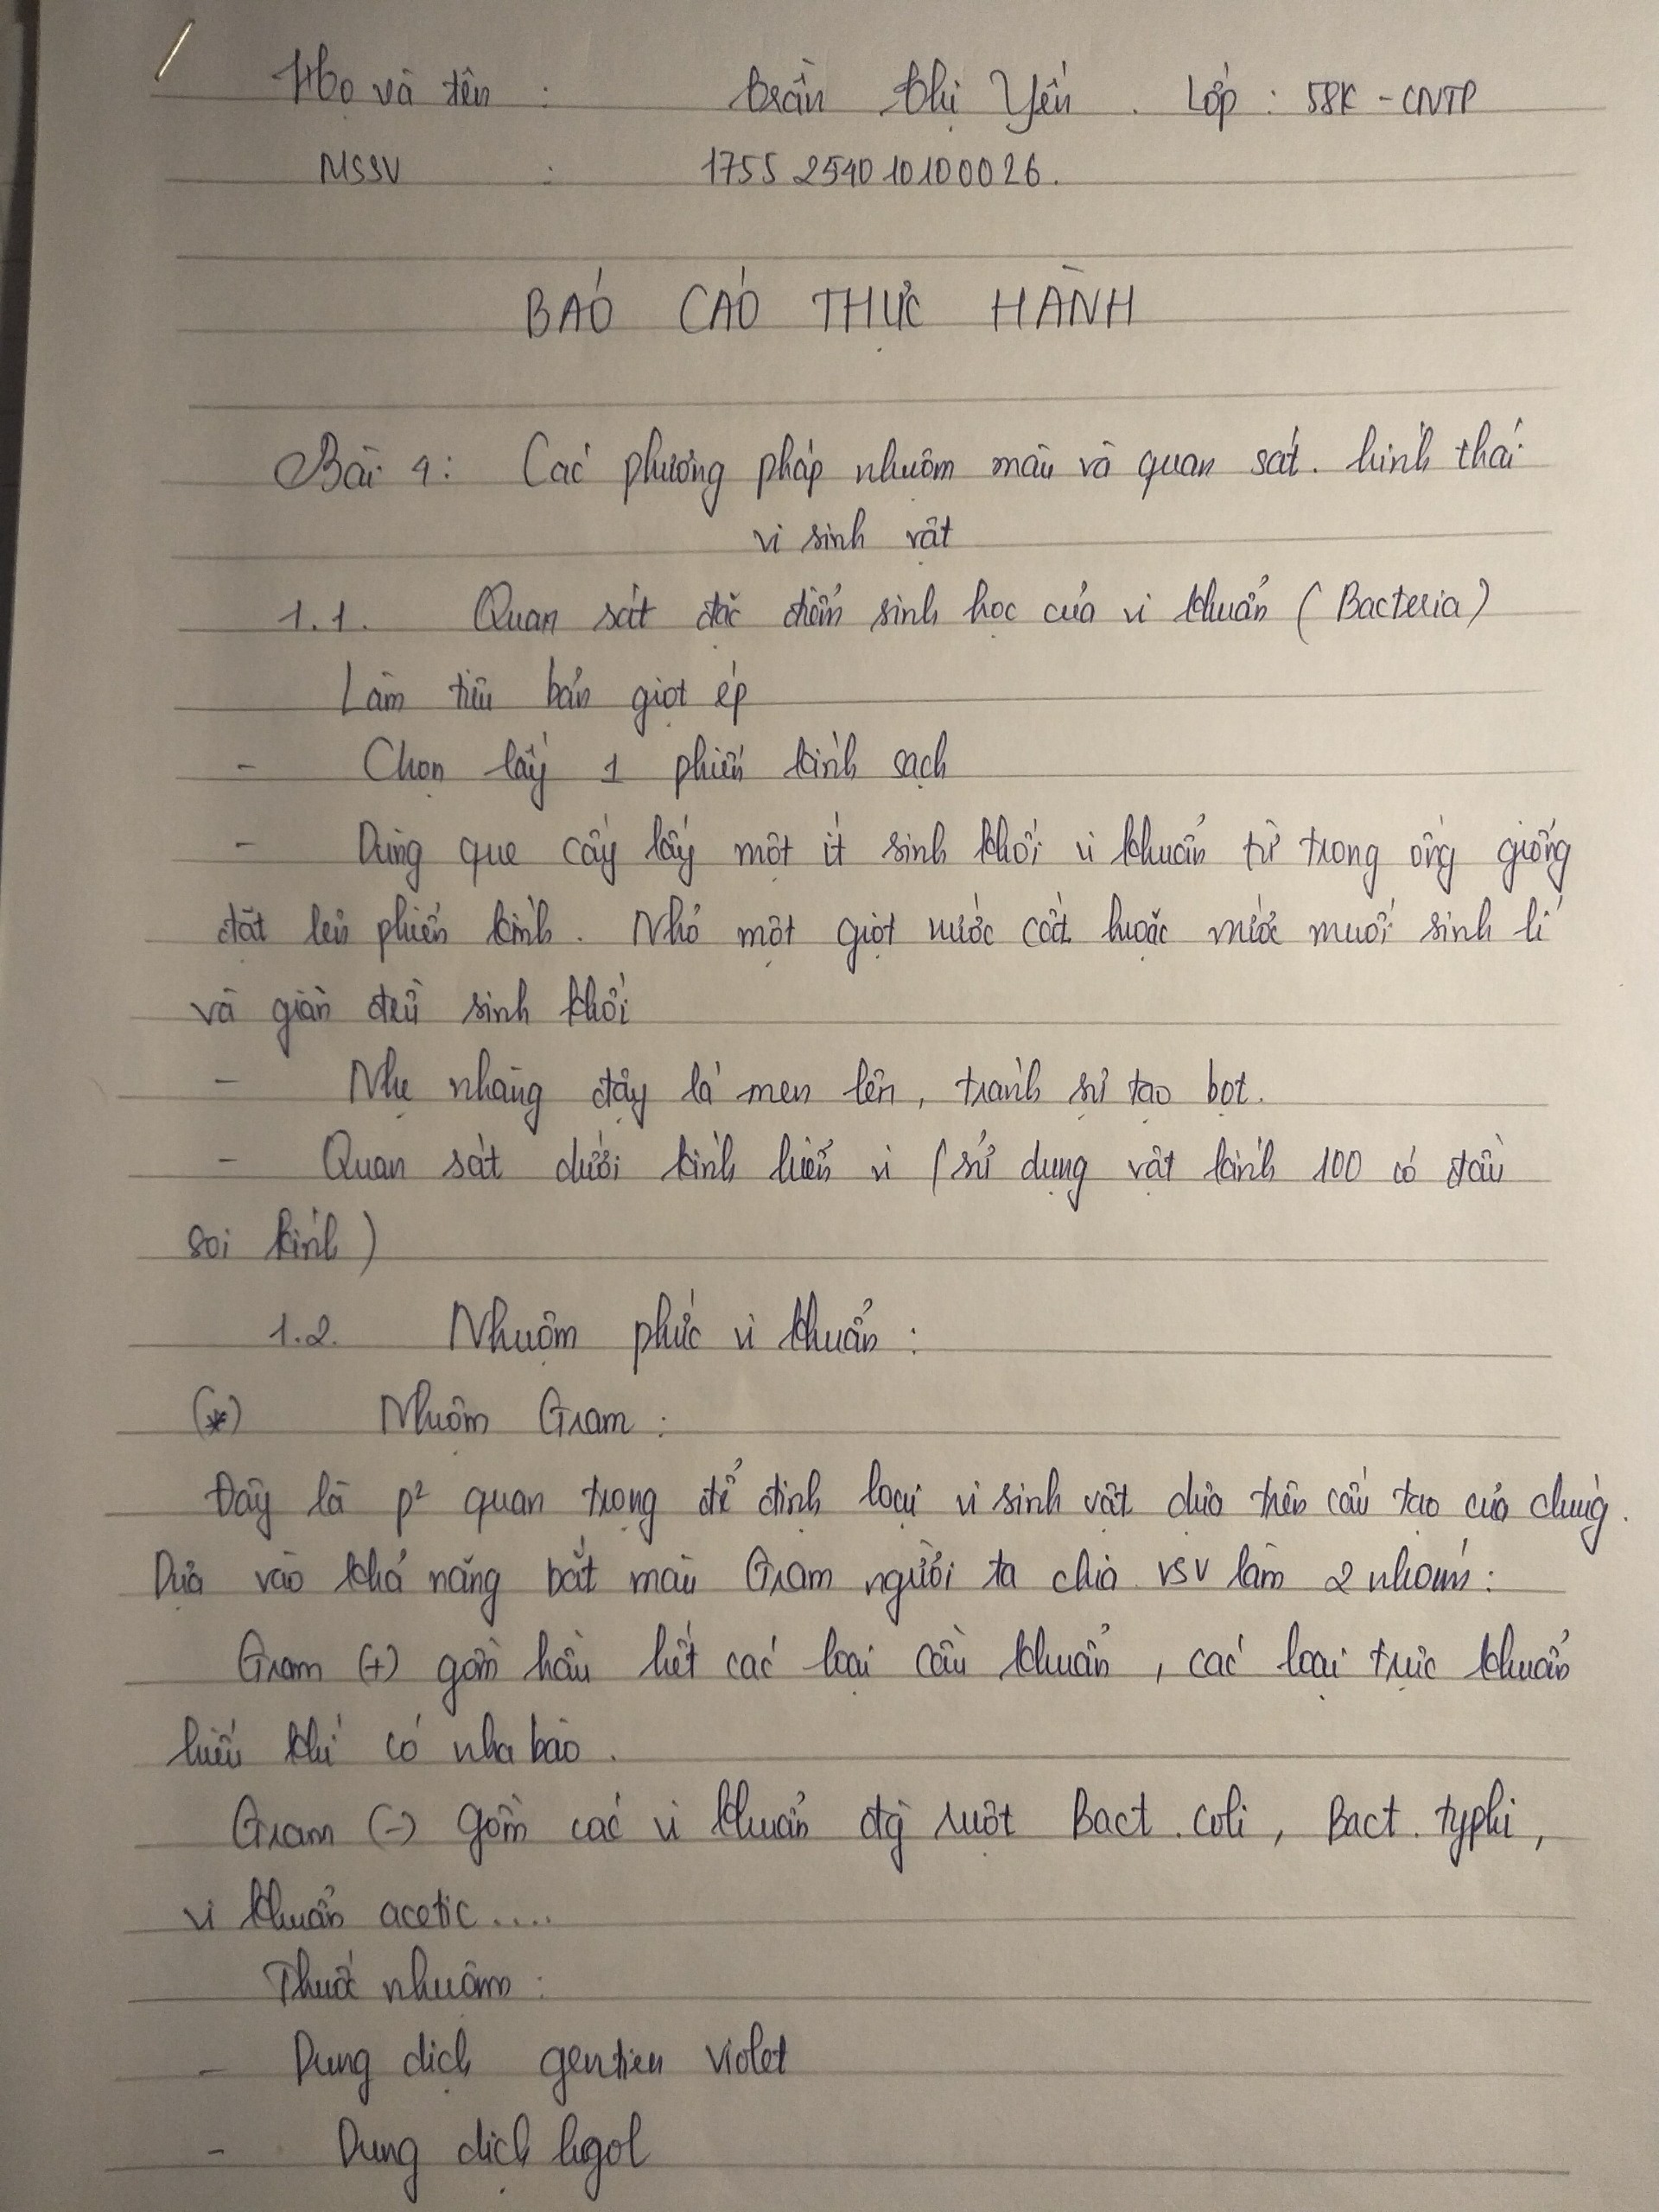 Họ và tên : Trần Thị Yến . Lớp : 58K - CNTP
MSSV : 1755 2540 10100026.
BÁO CÁO THỰC HÀNH
Bài 4: Các phương pháp nhuôm màu và quan sát. hình thái
vi sinh vật
1.1. Quan sát đặc điểm sinh học của vi khuẩn ( Bacteria )
Làm tiêu bản giọt ép
- Chọn lấy 1 phiến kính sạch
- Dùng que cấy lấy một ít sinh khối vi khuẩn từ trong ống giống
đặt lên phiến kính. Nhỏ một giọt nước cất hoặc nước muối sinh lí
và giàn đều sinh khối
- Nhẹ nhàng đậy lá men lên, tránh sự tạo bọt.
- Quan sát dưới kính hiển vi ( sử dụng vật kính 100 có dầu
soi kính )
1.2. Nhuộm phức vi khuẩn :
(*) Nhuộm Gram :
Đây là p² quan trọng để định loại vi sinh vật dựa trên cấu tạo của chúng.
Dựa vào khả năng bắt màu Gram người ta chia VSV làm 2 nhóm :
Gram (+) gồm hầu hết các loại cầu khuẩn, các loại trực khuẩn
hiếu khí có nha bào.
Gram (-) gồm các vi khuẩn đg ruột Bact. coli, Bact. typhi,
vi khuẩn acetic....
Thuốc nhuộm :
- Dung dịch gentien violet
- Dung dịch lugol